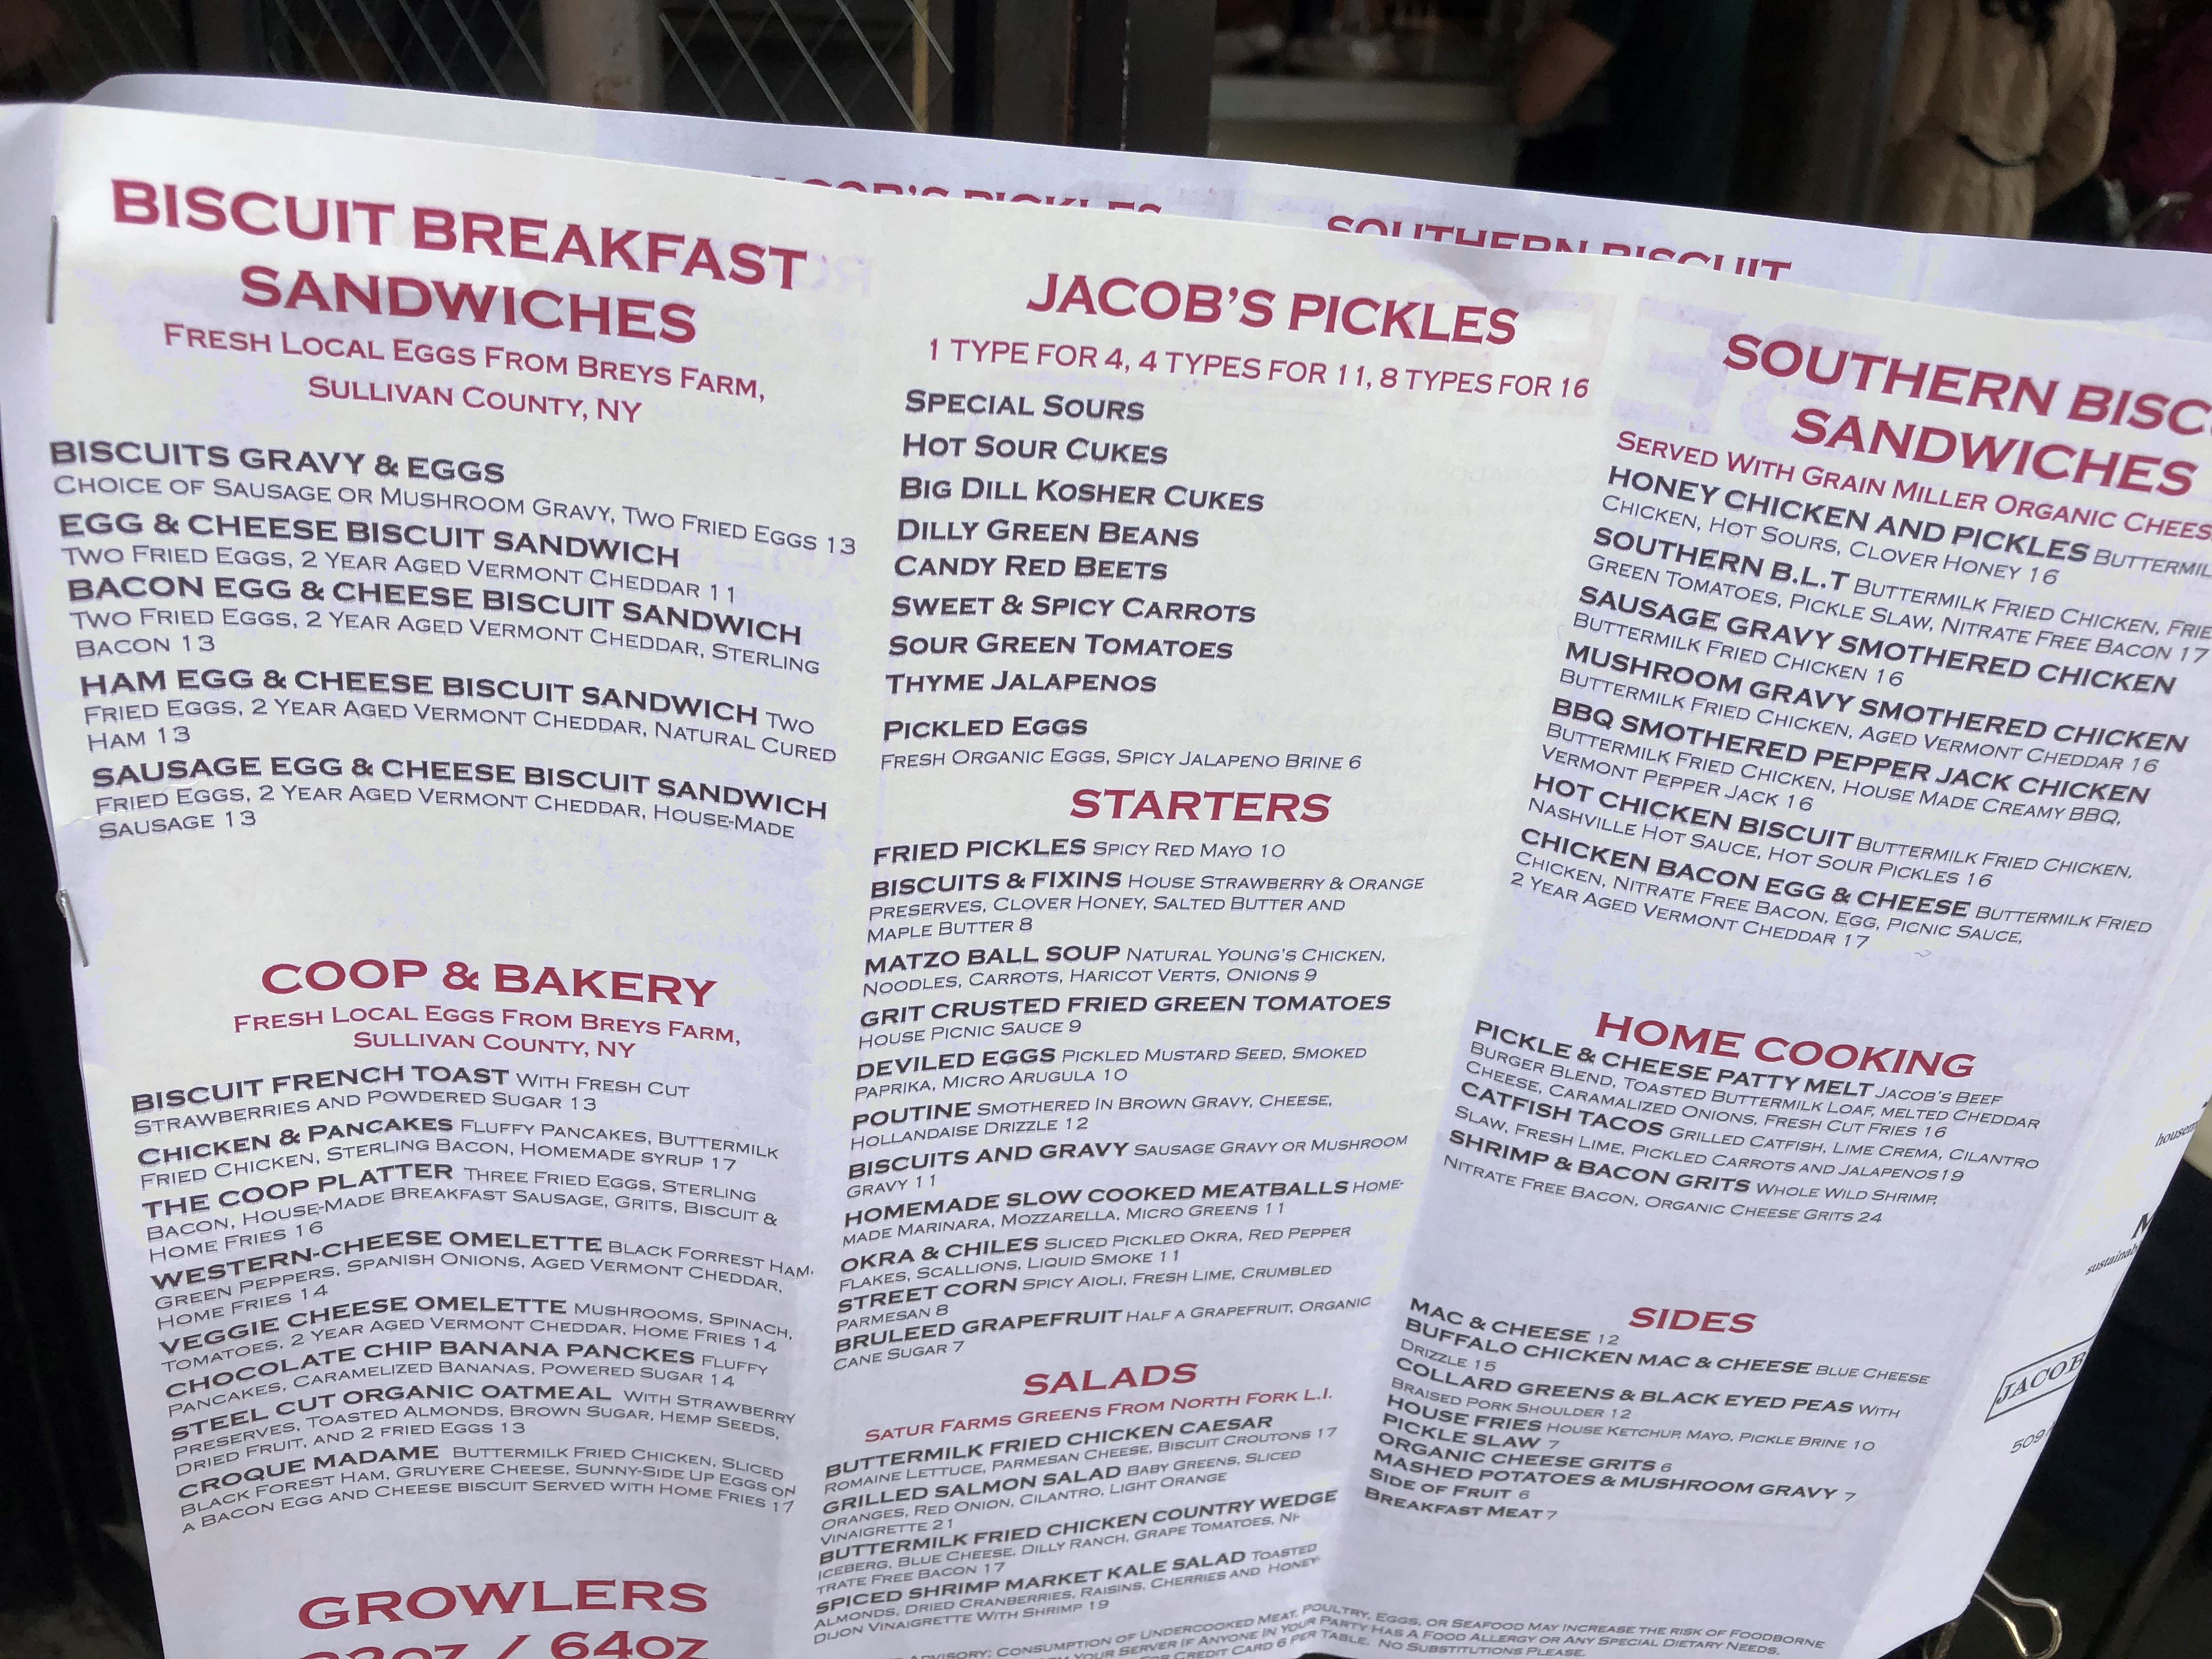 BISCUIT BREAKFAST
SANDWICHES
FRESH LOCAL EGGS FROM BREYS FARM,
SULLIVAN COUNTY, NY
BISCUITS GRAVY & EGGS
CHOICE OF SAUSAGE OR MUSHROOM GRAVY, TWO FRIED EGGS 13
EGG & CHEESE BISCUIT SANDWICH
TWO FRIED EGGS, 2 YEAR AGED VERMONT CHEDDAR 11
BACON EGG & CHEESE BISCUIT SANDWICH
TWO FRIED EGGS, 2 YEAR AGED VERMONT CHEDDAR, STERLING
BACON 13
HAM EGG & CHEESE BISCUIT SANDWICH TWO
FRIED EGGS, 2 YEAR AGED VERMONT CHEDDAR, NATURAL CURED
HAM 13
SAUSAGE EGG & CHEESE BISCUIT SANDWICH
FRIED EGGS, 2 YEAR AGED VERMONT CHEDDAR, HOUSE-MADE
SAUSAGE 13
COOP & BAKERY
FRESH LOCAL EGGS FROM BREYS FARM,
SULLIVAN COUNTY, NY
BISCUIT FRENCH TOAST WITH FRESH CUT
STRAWBERRIES AND POWDERED SUGAR 13
CHICKEN & PANCAKES FLUFFY PANCAKES, BUTTERMILK
FRIED CHICKEN, STERLING BACON, HOMEMADE SYRUP 17
THE COOP PLATTER THREE FRIED EGGS, STERLING
BACON, HOUSE-MADE BREAKFAST SAUSAGE, GRITS, BISCUIT &
HOME FRIES 16
WESTERN-CHEESE OMELETTE BLACK FORREST HAM,
GREEN PEPPERS, SPANISH ONIONS, AGED VERMONT CHEDDAR,
HOME FRIES 14
VEGGIE CHEESE OMELETTE MUSHROOMS, SPINACH,
TOMATOES, 2 YEAR AGED VERMONT CHEDDAR, HOME FRIES 14
CHOCOLATE CHIP BANANA PANCKES FLUFFY
PANCAKES, CARAMELIZED BANANAS, POWERED SUGAR 14
STEEL CUT ORGANIC OATMEAL WITH STRAWBERRY
PRESERVES, TOASTED ALMONDS, BROWN SUGAR, HEMP SEEDS,
DRIED FRUIT, AND 2 FRIED EGGS 13
CROQUE MADAME BUTTERMILK FRIED CHICKEN, SLICED
BLACK FOREST HAM, GRUYERE CHEESE, SUNNY-SIDE UP EGGS ON
A BACON EGG AND CHEESE BISCUIT SERVED WITH HOME FRIES 17
GROWLERS
/ 64OZ
JACOB'S PICKLES
JACOB'S PICKLES
1 TYPE FOR 4, 4 TYPES FOR 11, 8 TYPES FOR 16
SPECIAL SOURS
HOT SOUR CUKES
BIG DILL KOSHER CUKES
DILLY GREEN BEANS
CANDY RED BEETS
SWEET & SPICY CARROTS
SOUR GREEN TOMATOES
THYME JALAPENOS
PICKLED EGGS
FRESH ORGANIC EGGS, SPICY JALAPENO BRINE 6
STARTERS
FRIED PICKLES SPICY RED MAYO 10
BISCUITS & FIXINS HOUSE STRAWBERRY & ORANGE
PRESERVES, CLOVER HONEY, SALTED BUTTER AND
MAPLE BUTTER 8
MATZO BALL SOUP NATURAL YOUNG'S CHICKEN,
NOODLES, CARROTS, HARICOT VERTS, ONIONS 9
GRIT CRUSTED FRIED GREEN TOMATOES
HOUSE PICNIC SAUCE 9
DEVILED EGGS PICKLED MUSTARD SEED, SMOKED
PAPRIKA, MICRO ARUGULA 10
POUTINE SMOTHERED IN BROWN GRAVY, CHEESE,
HOLLANDAISE DRIZZLE 12
BISCUITS AND GRAVY SAUSAGE GRAVY OR MUSHROOM
GRAVY 11
HOMEMADE SLOW COOKED MEATBALLS HOME-
MADE MARINARA, MOZZARELLA, MICRO GREENS 11
OKRA & CHILES SLICED PICKLED OKRA, RED PEPPER
FLAKES, SCALLIONS, LIQUID SMOKE 11
STREET CORN SPICY AIOLI, FRESH LIME, CRUMBLED
PARMESAN 8
BRULEED GRAPEFRUIT HALF A GRAPEFRUIT, ORGANIC
CANE SUGAR 7
SALADS
SATUR FARMS GREENS FROM NORTH FORK L.I.
BUTTERMILK FRIED CHICKEN CAESAR
ROMAINE LETTUCE, PARMESAN CHEESE, BISCUIT CROUTONS 17
GRILLED SALMON SALAD BABY GREENS, SLICED
ORANGES, RED ONION, CILANTRO, LIGHT ORANGE
VINAIGRETTE 21
BUTTERMILK FRIED CHICKEN COUNTRY WEDGE
ICEBERG, BLUE CHEESE, DILLY RANCH, GRAPE TOMATOES, NI-
TRATE FREE BACON 17
SPICED SHRIMP MARKET KALE SALAD TOASTED
ALMONDS, DRIED CRANBERRIES, RAISINS, CHERRIES AND HONEY-
DIJON VINAIGRETTE WITH SHRIMP 19
SOUTHERN BISCUIT
SOUTHERN BISC
SANDWICHES
SERVED WITH GRAIN MILLER ORGANIC CHEES
HONEY CHICKEN AND PICKLES BUTTERMIL
CHICKEN, HOT SOURS, CLOVER HONEY 16
SOUTHERN B.L.T BUTTERMILK FRIED CHICKEN, FRIE
GREEN TOMATOES, PICKLE SLAW, NITRATE FREE BACON 17
SAUSAGE GRAVY SMOTHERED CHICKEN
BUTTERMILK FRIED CHICKEN 16
MUSHROOM GRAVY SMOTHERED CHICKEN
BUTTERMILK FRIED CHICKEN, AGED VERMONT CHEDDAR 16
BBQ SMOTHERED PEPPER JACK CHICKEN
BUTTERMILK FRIED CHICKEN, HOUSE MADE CREAMY BBQ,
VERMONT PEPPER JACK 16
HOT CHICKEN BISCUIT BUTTERMILK FRIED CHICKEN,
NASHVILLE HOT SAUCE, HOT SOUR PICKLES 16
CHICKEN BACON EGG & CHEESE BUTTERMILK FRIED
CHICKEN, NITRATE FREE BACON, EGG, PICNIC SAUCE,
2 YEAR AGED VERMONT CHEDDAR 17
HOME COOKING
PICKLE & CHEESE PATTY MELT JACOB'S BEEF
BURGER BLEND, TOASTED BUTTERMILK LOAF, MELTED CHEDDAR
CHEESE, CARAMALIZED ONIONS, FRESH CUT FRIES 16
CATFISH TACOS GRILLED CATFISH, LIME CREMA, CILANTRO
SLAW, FRESH LIME, PICKLED CARROTS AND JALAPENOS 19
SHRIMP & BACON GRITS WHOLE WILD SHRIMP,
NITRATE FREE BACON, ORGANIC CHEESE GRITS 24
SIDES
MAC & CHEESE 12
BUFFALO CHICKEN MAC & CHEESE BLUE CHEESE
DRIZZLE 15
COLLARD GREENS & BLACK EYED PEAS WITH
BRAISED PORK SHOULDER 12
HOUSE FRIES HOUSE KETCHUP, MAYO, PICKLE BRINE 10
PICKLE SLAW 7
ORGANIC CHEESE GRITS 6
MASHED POTATOES & MUSHROOM GRAVY 7
SIDE OF FRUIT 6
BREAKFAST MEAT 7
ADVISORY: CONSUMPTION OF UNDERCOOKED MEAT, POULTRY, EGGS, OR SEAFOOD MAY INCREASE THE RISK OF FOODBORNE
YOUR SERVER IF ANYONE IN YOUR PARTY HAS A FOOD ALLERGY OR ANY SPECIAL DIETARY NEEDS.
CREDIT CARD 6 PER TABLE. NO SUBSTITUTIONS PLEASE.
housem
sustainab
JACOB
509